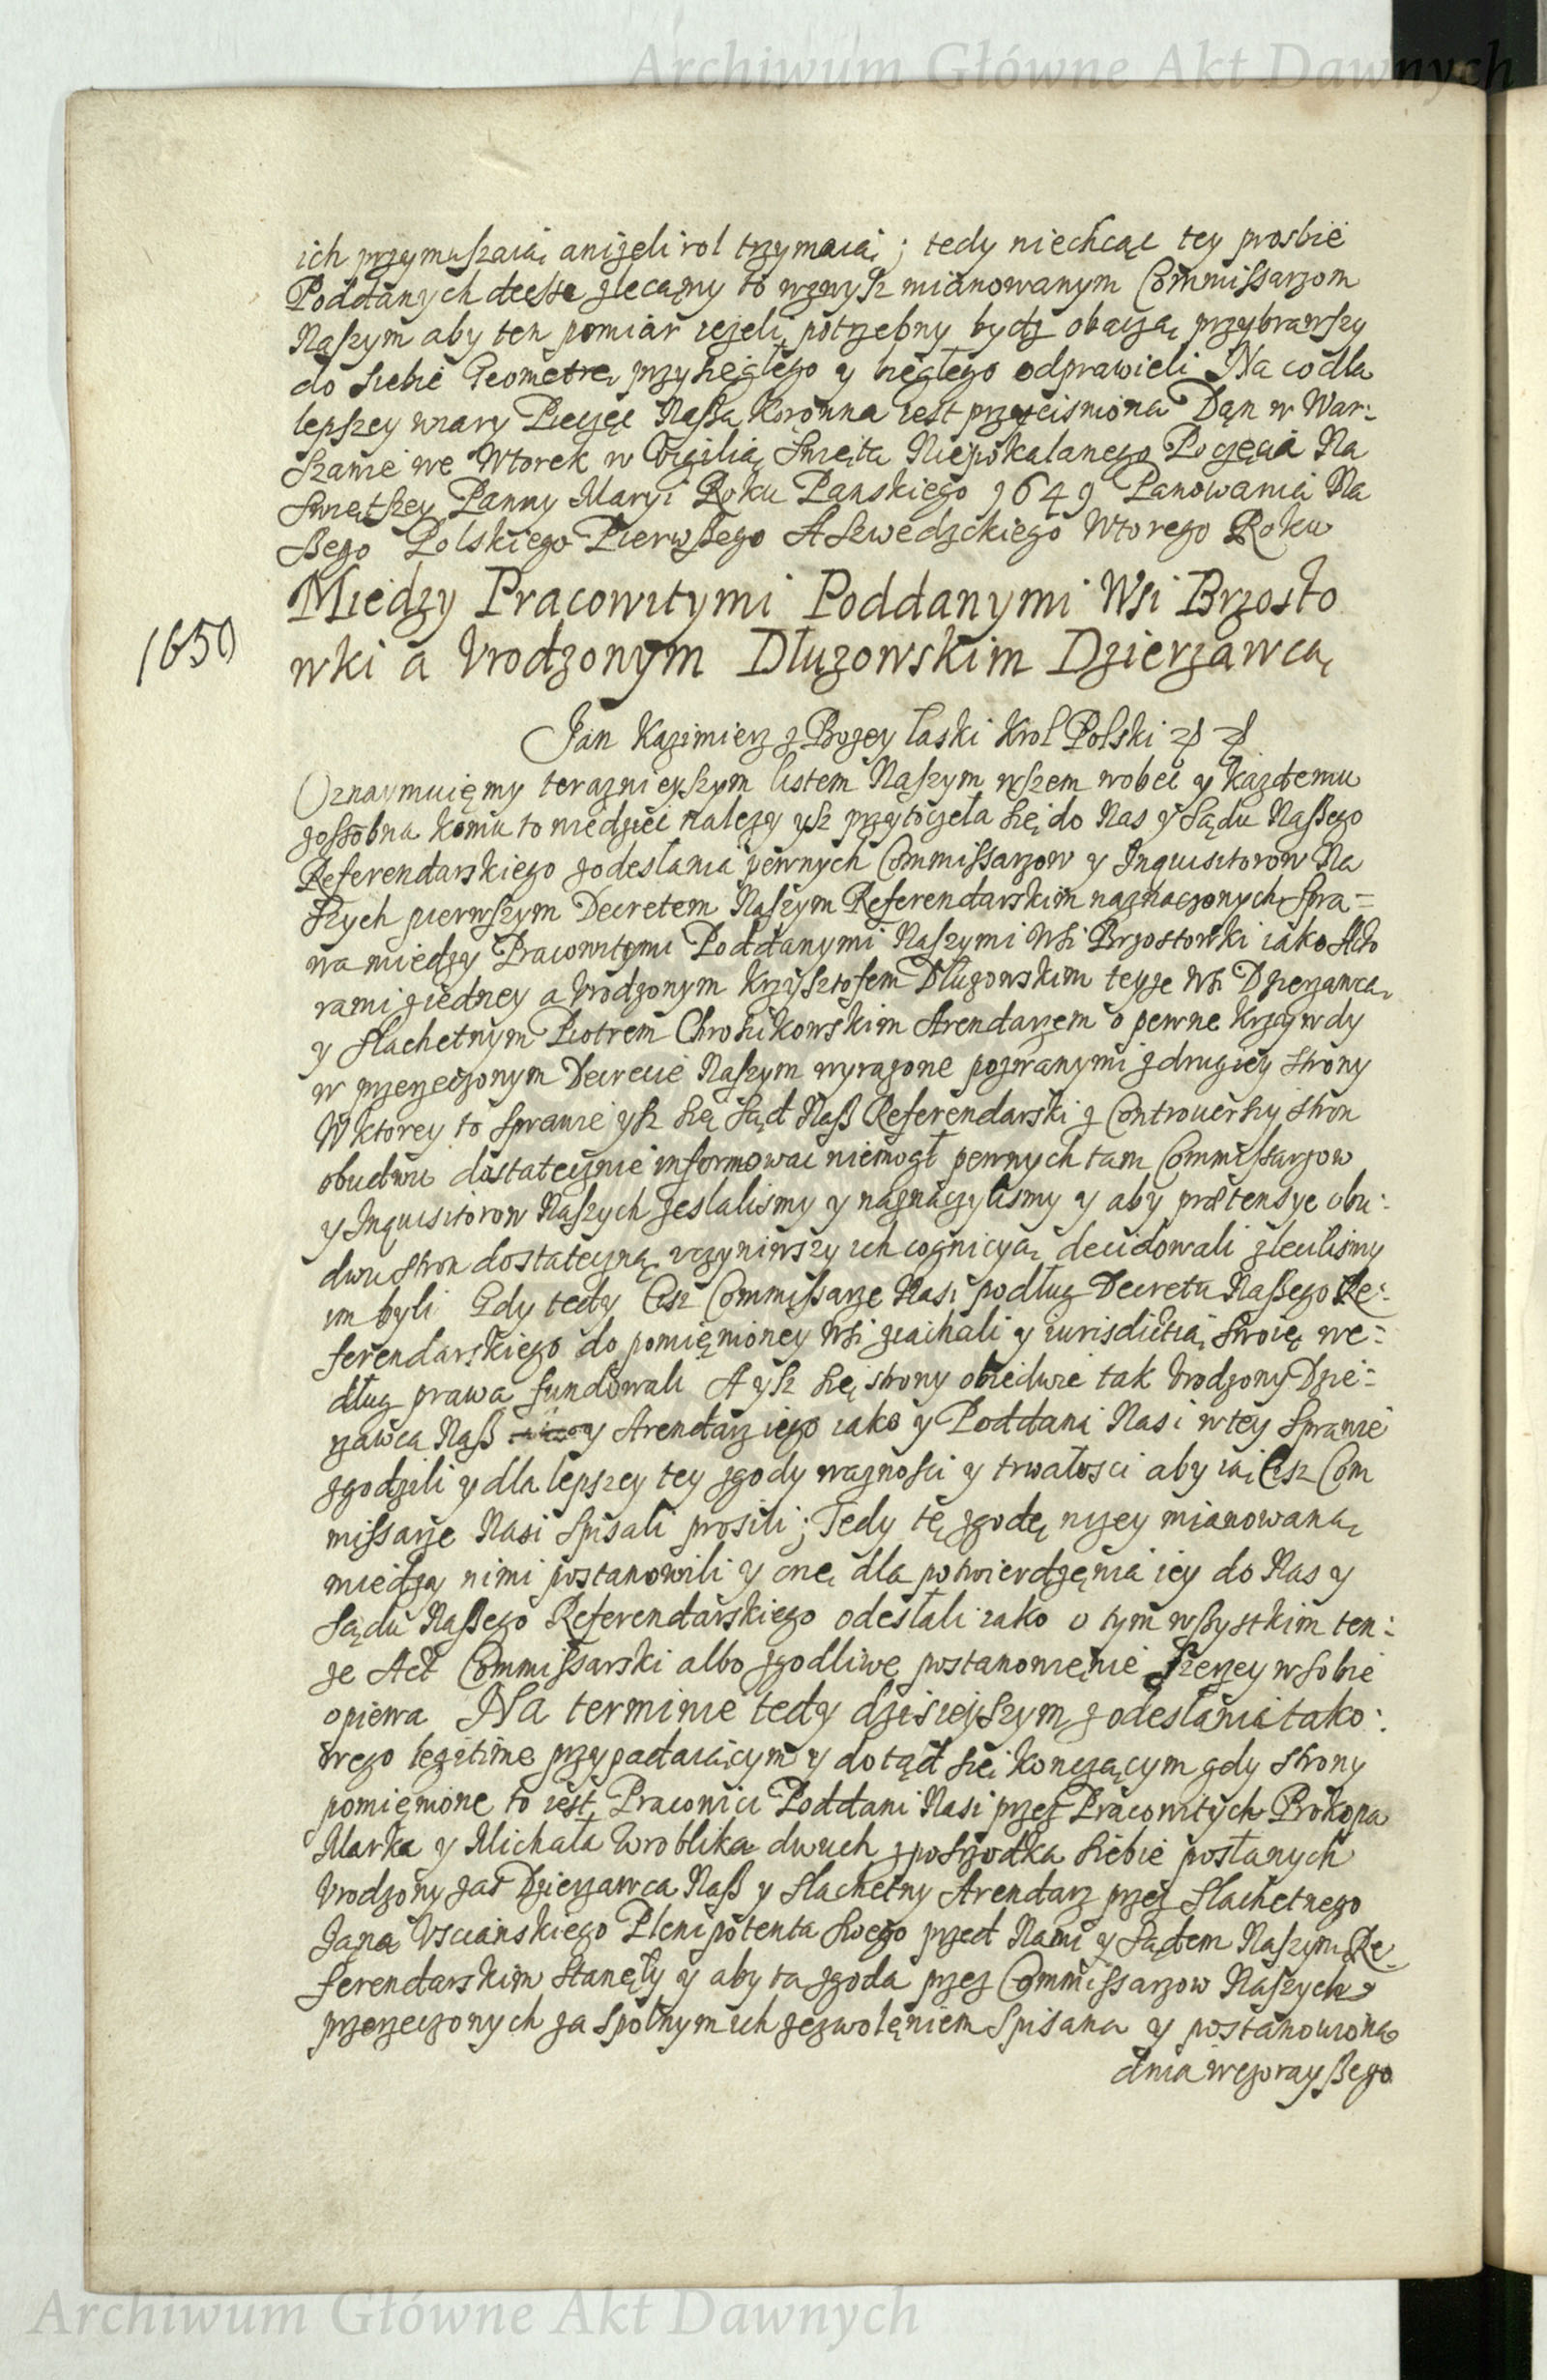 Archiwum Główne Akt Dawnych
ich przymuszaią aniżeli rol trzymaią; tedy niechcąc tey prosbie
Poddanych deesse zlecamy to wzwysz mianowanym Commissarzom
Naszym aby ten pomiar ieżeli potrzebny bydz obaczą przybrawszy
do siebie Geometrę przysięgłego y biegłego odprawieli Na co dla
lepszey wiary Pieczęć Nasza Koronna iest przyciśniona Dan w War:
szawie we Wtorek w Wigilią Święta Niepokalanego Poczęcia Na
Świętszey Panny Maryi Roku Panskiego 1649 Panowania Na
szego Polskiego Pierwszego A Szwedzckiego Wtorego Roku
Miedzy Pracowitymi Poddanymi Wsi Brzosto
1650
wki a Vrodzonym Dłuzowskim Dzierzawcą
Jan Kazimierz z Bozey Łaski Krol Polski
Oznaymuięmy teraznieyszym listem Naszym wszem wobec y każdemu
zossobna komu to wiedzieć nalezy ysz przytoczeła się do Nas y Sądu Naszego
Referendarskiego z odesłania pewnych Commissarzow y Inquisitorow Na
szych pierwszym Decretem Naszym Referendarskim naznaczonych Spra=
wa między Pracowitymi Poddanymi Naszymi Wsi Brzostowki iako Acto
rami z iedney a Vrodzonym Krzysztofem Dłuzowskim teyże Wsi Dzierzawcą
y Slachetnym Piotrem Chrosikowskim Arendarzem o pewne krzywdy
w przerzeczonym Decrecie Naszym wyrazone pozwanymi z drugiey strony
W ktorey to Sprawie ysz się Sąd Nasz Referendarski z Controuersiy stron
obudwu dostatecznie informować niemogł pewnych tam Commissarzow
y Inquisitorow Naszych zeslalismy y naznaczylismy y aby prætensye obu:
dwu stron dostateczną vczyniwszy ich cognicyą decidowali zlecilismy
im byli Gdy tedy Cisz Commissarze Nasi podług Decretu Naszego Re:
ferendarskiego do pomięnioney Wsi ziachali y iurisdictią Swoię we=
dług prawa fundowali A ysz się strony obiedwie tak Vrodzony Dzie=
rzawca Nasz y Arendarz iego iako y Poddani Nasi w tey Sprawie
zgodzili y dla lepszey tey zgody wazności y trwałosci aby ią Cisz Com
missarze Nasi Spisali prosili; Tedy tę zgodę nizey mianowaną
miedzy nimi postanowili y onę dla potwierdzęnia iey do Nas y
Sądu Naszego Referendarskiego odesłali iako o tym wszystkim ten:
ze Act Commissarski albo zgodliwe postanowięnie szerzey w sobie
opiewa Na terminie tedy dzisieyszym z odesłania tako:
wego legitime przypadaiącym y dotąd się konczącym gdy strony
pomięnione to iest Pracowici Poddani Nasi przez Pracowitych Prokopa
Marka y Michała Wroblika dwuch z posrzodka siebie posłanych
Vrodzony zas Dzierzawca Nasz y Slachetny Arendarz przez Slachetnego
Jana Vscianskiego Plenipotenta Swego przed Nami y Sądem Naszym Re
ferendarskim stanęły y aby ta zgoda przez Commissarzow Naszych
przerzeczonych za spolnym ich zezwolęniem Spisana y postanowiona
dnia wczorayszego
Archiwum Główne Akt Dawnych